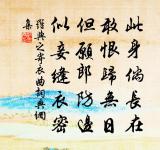 此身倘長在
敢恨歸無日
但願郎防邊
似妾縫衣密
羅與之寄衣曲詞典網
集